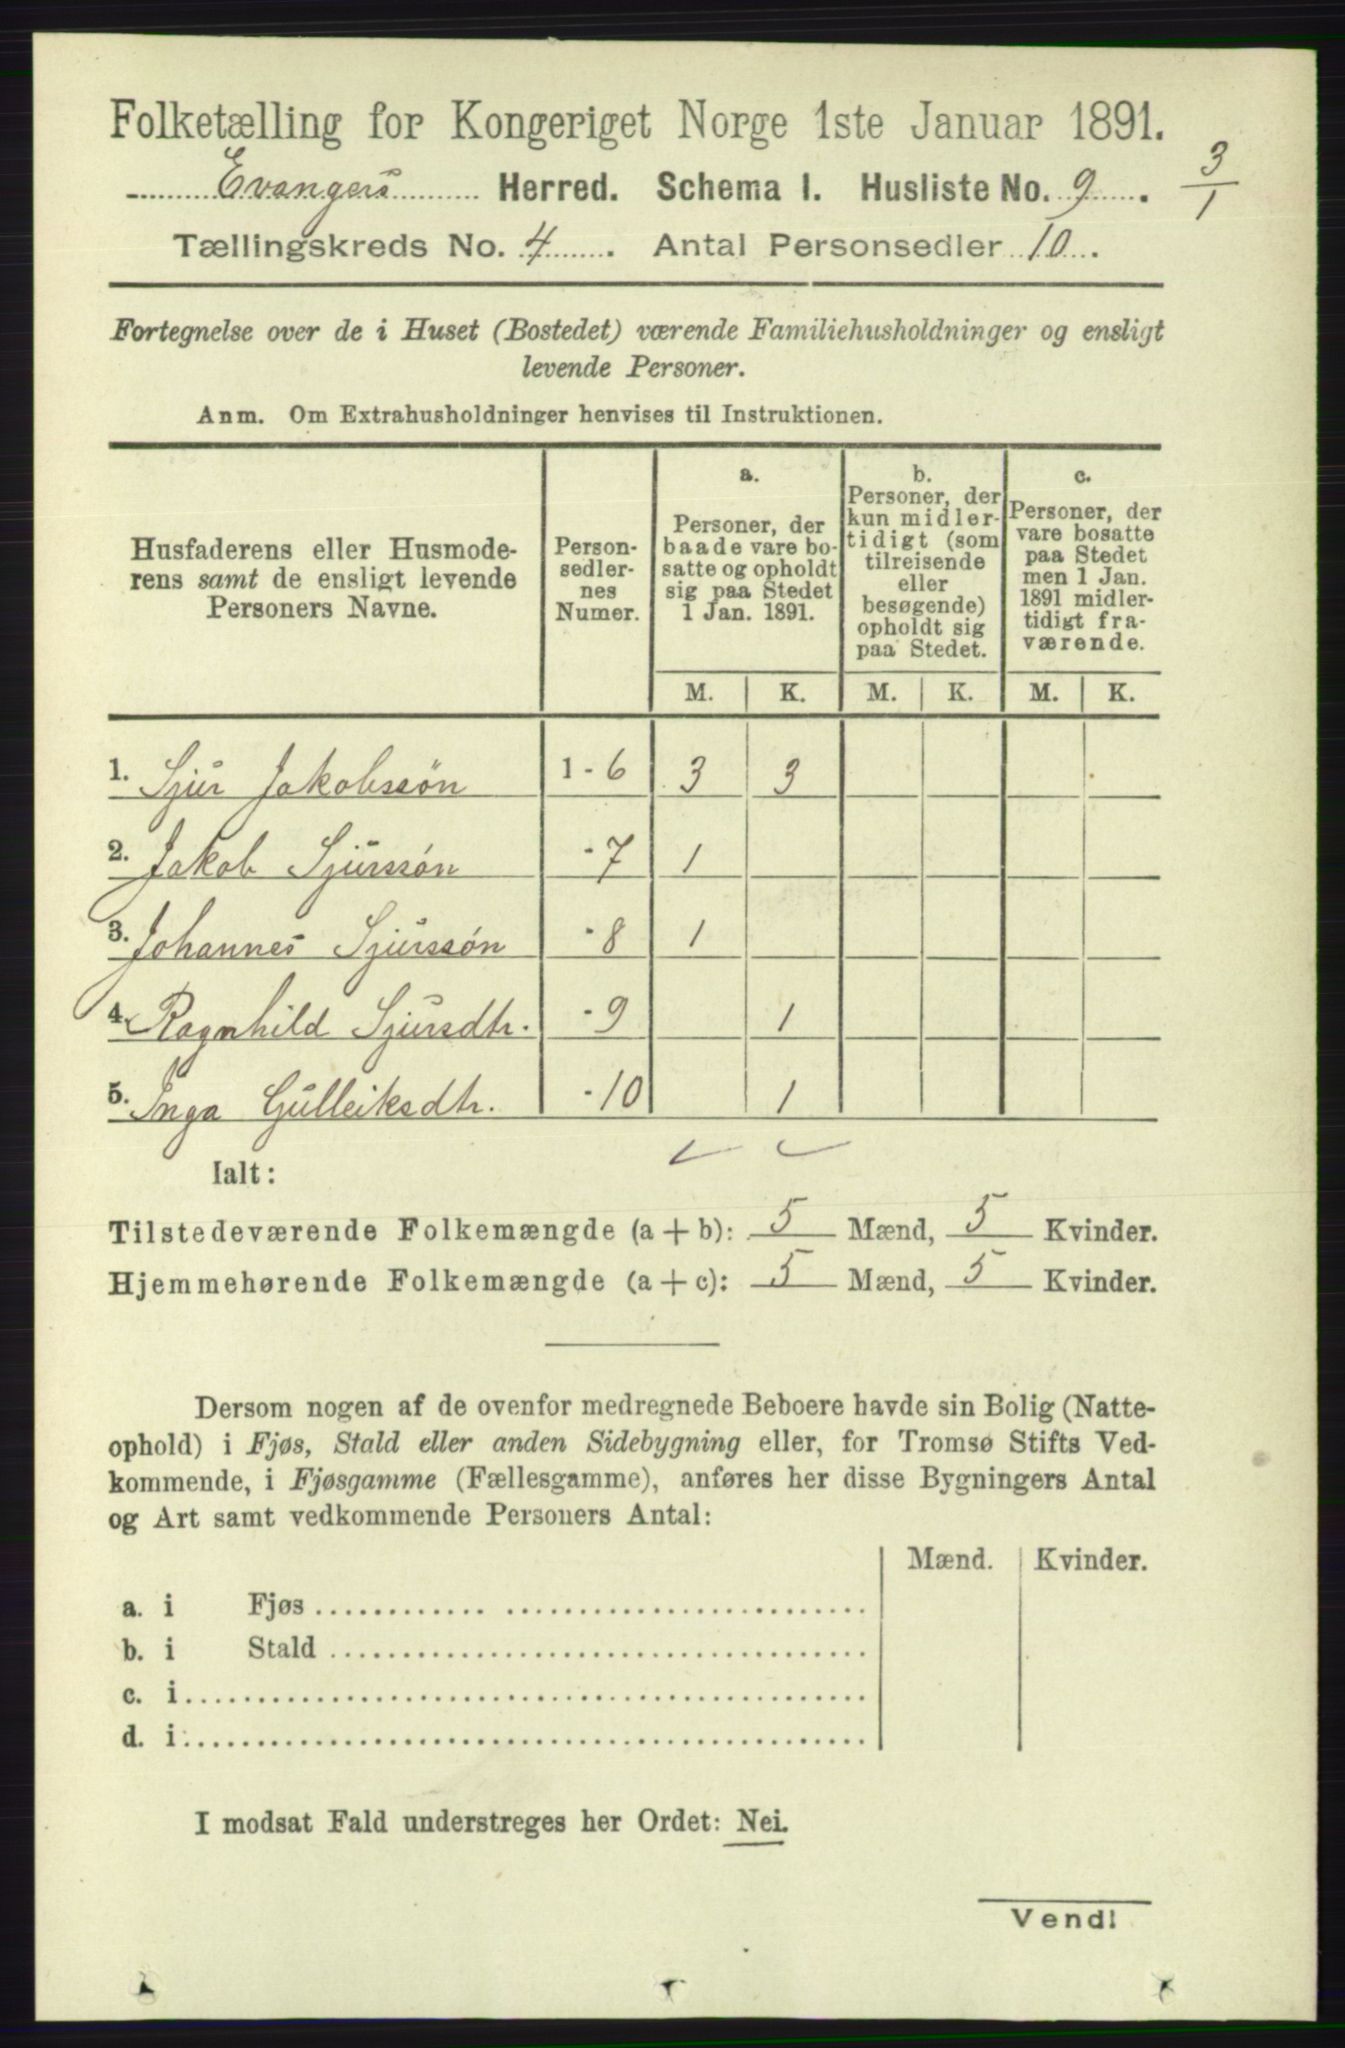 Folketælling for Kongeriget Norge 1ste Januar 1891.
Evangers Herred. Schema 1. Husliste No. 9.
3/1
Tællingskreds No. 4. Antal Personsedler 10.
Fortegnelse over de i Huset (Bostedet) værende Familiehusholdninger og ensligt
levende Personer.
Anm. Om Extrahusholdninger henvises til Instruktionen.
Husfaderens eller Husmode-
rens samt de ensligt levende
Personers Navne.
Person-
sedler-
nes
Numer.
a.
Personer, der
baade vare bo-
satte og opholdt
sig paa Stedet
1 Jan. 1891.
b.
Personer, der
kun midler-
tidigt (som
tilreisende
eller
besøgende)
opholdt sig
paa Stedet.
c.
Personer, der
vare bosatte
paa Stedet
men 1 Jan.
1891 midler-
tidigt fra-
værende.
M. K. M. K. M. K.
1. Sjur Jakobssøn 1-6 3 3
2. Jakob Sjurssøn -7 1
3. Johannes Sjurssøn -8 1
4. Ragnhild Sjursdtr. -9 1
5. Inga Gulleiksdtr. -10 1
Ialt:
Tilstedeværende Folkemængde (a+b): 5 Mænd, 5 Kvinder.
Hjemmehørende Folkemængde (a+c): 5 Mænd, 5 Kvinder.
Dersom nogen af de ovenfor medregnede Beboere havde sin Bolig (Natte-
ophold) i Fjøs, Stald eller anden Sidebygning eller, for Tromsø Stifts Ved-
kommende, i Fjøsgamme (Fællesgamme), anføres her disse Bygningers Antal
og Art samt vedkommende Personers Antal:
Mænd. Kvinder.
a. i Fjøs
b. i Stald
c. i
d. i
I modsat Fald understreges her Ordet: Nei.
Vend!